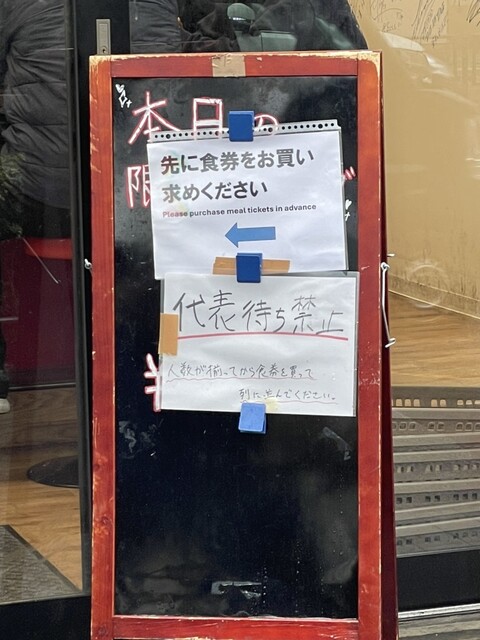 本日の
限
先に食券をお買い
求めください
Please purchase meal tickets in advance
代表待ち禁止
人数が揃ってから食券を買って
列に並んでください。